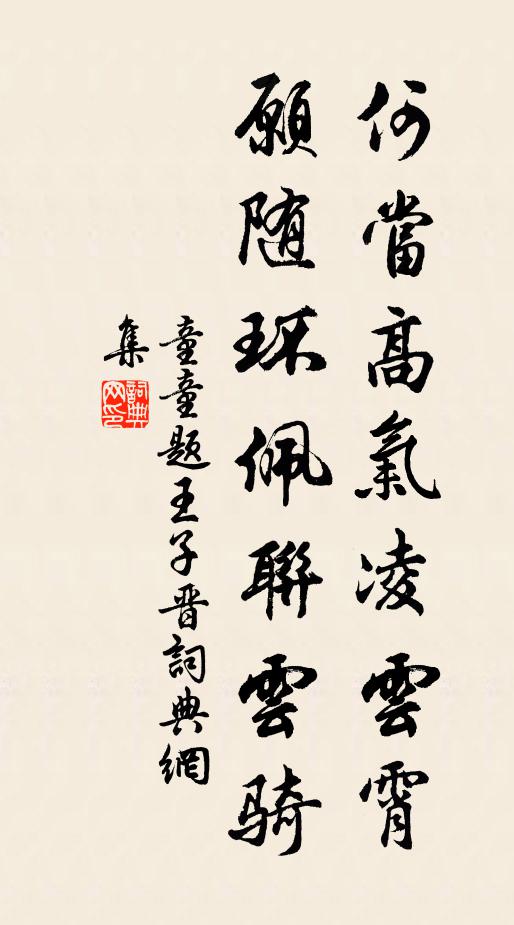 何當高氣凌雲霄
願随环佩聯雲騎
童童題王子晋詞典網
集
詞典
网印